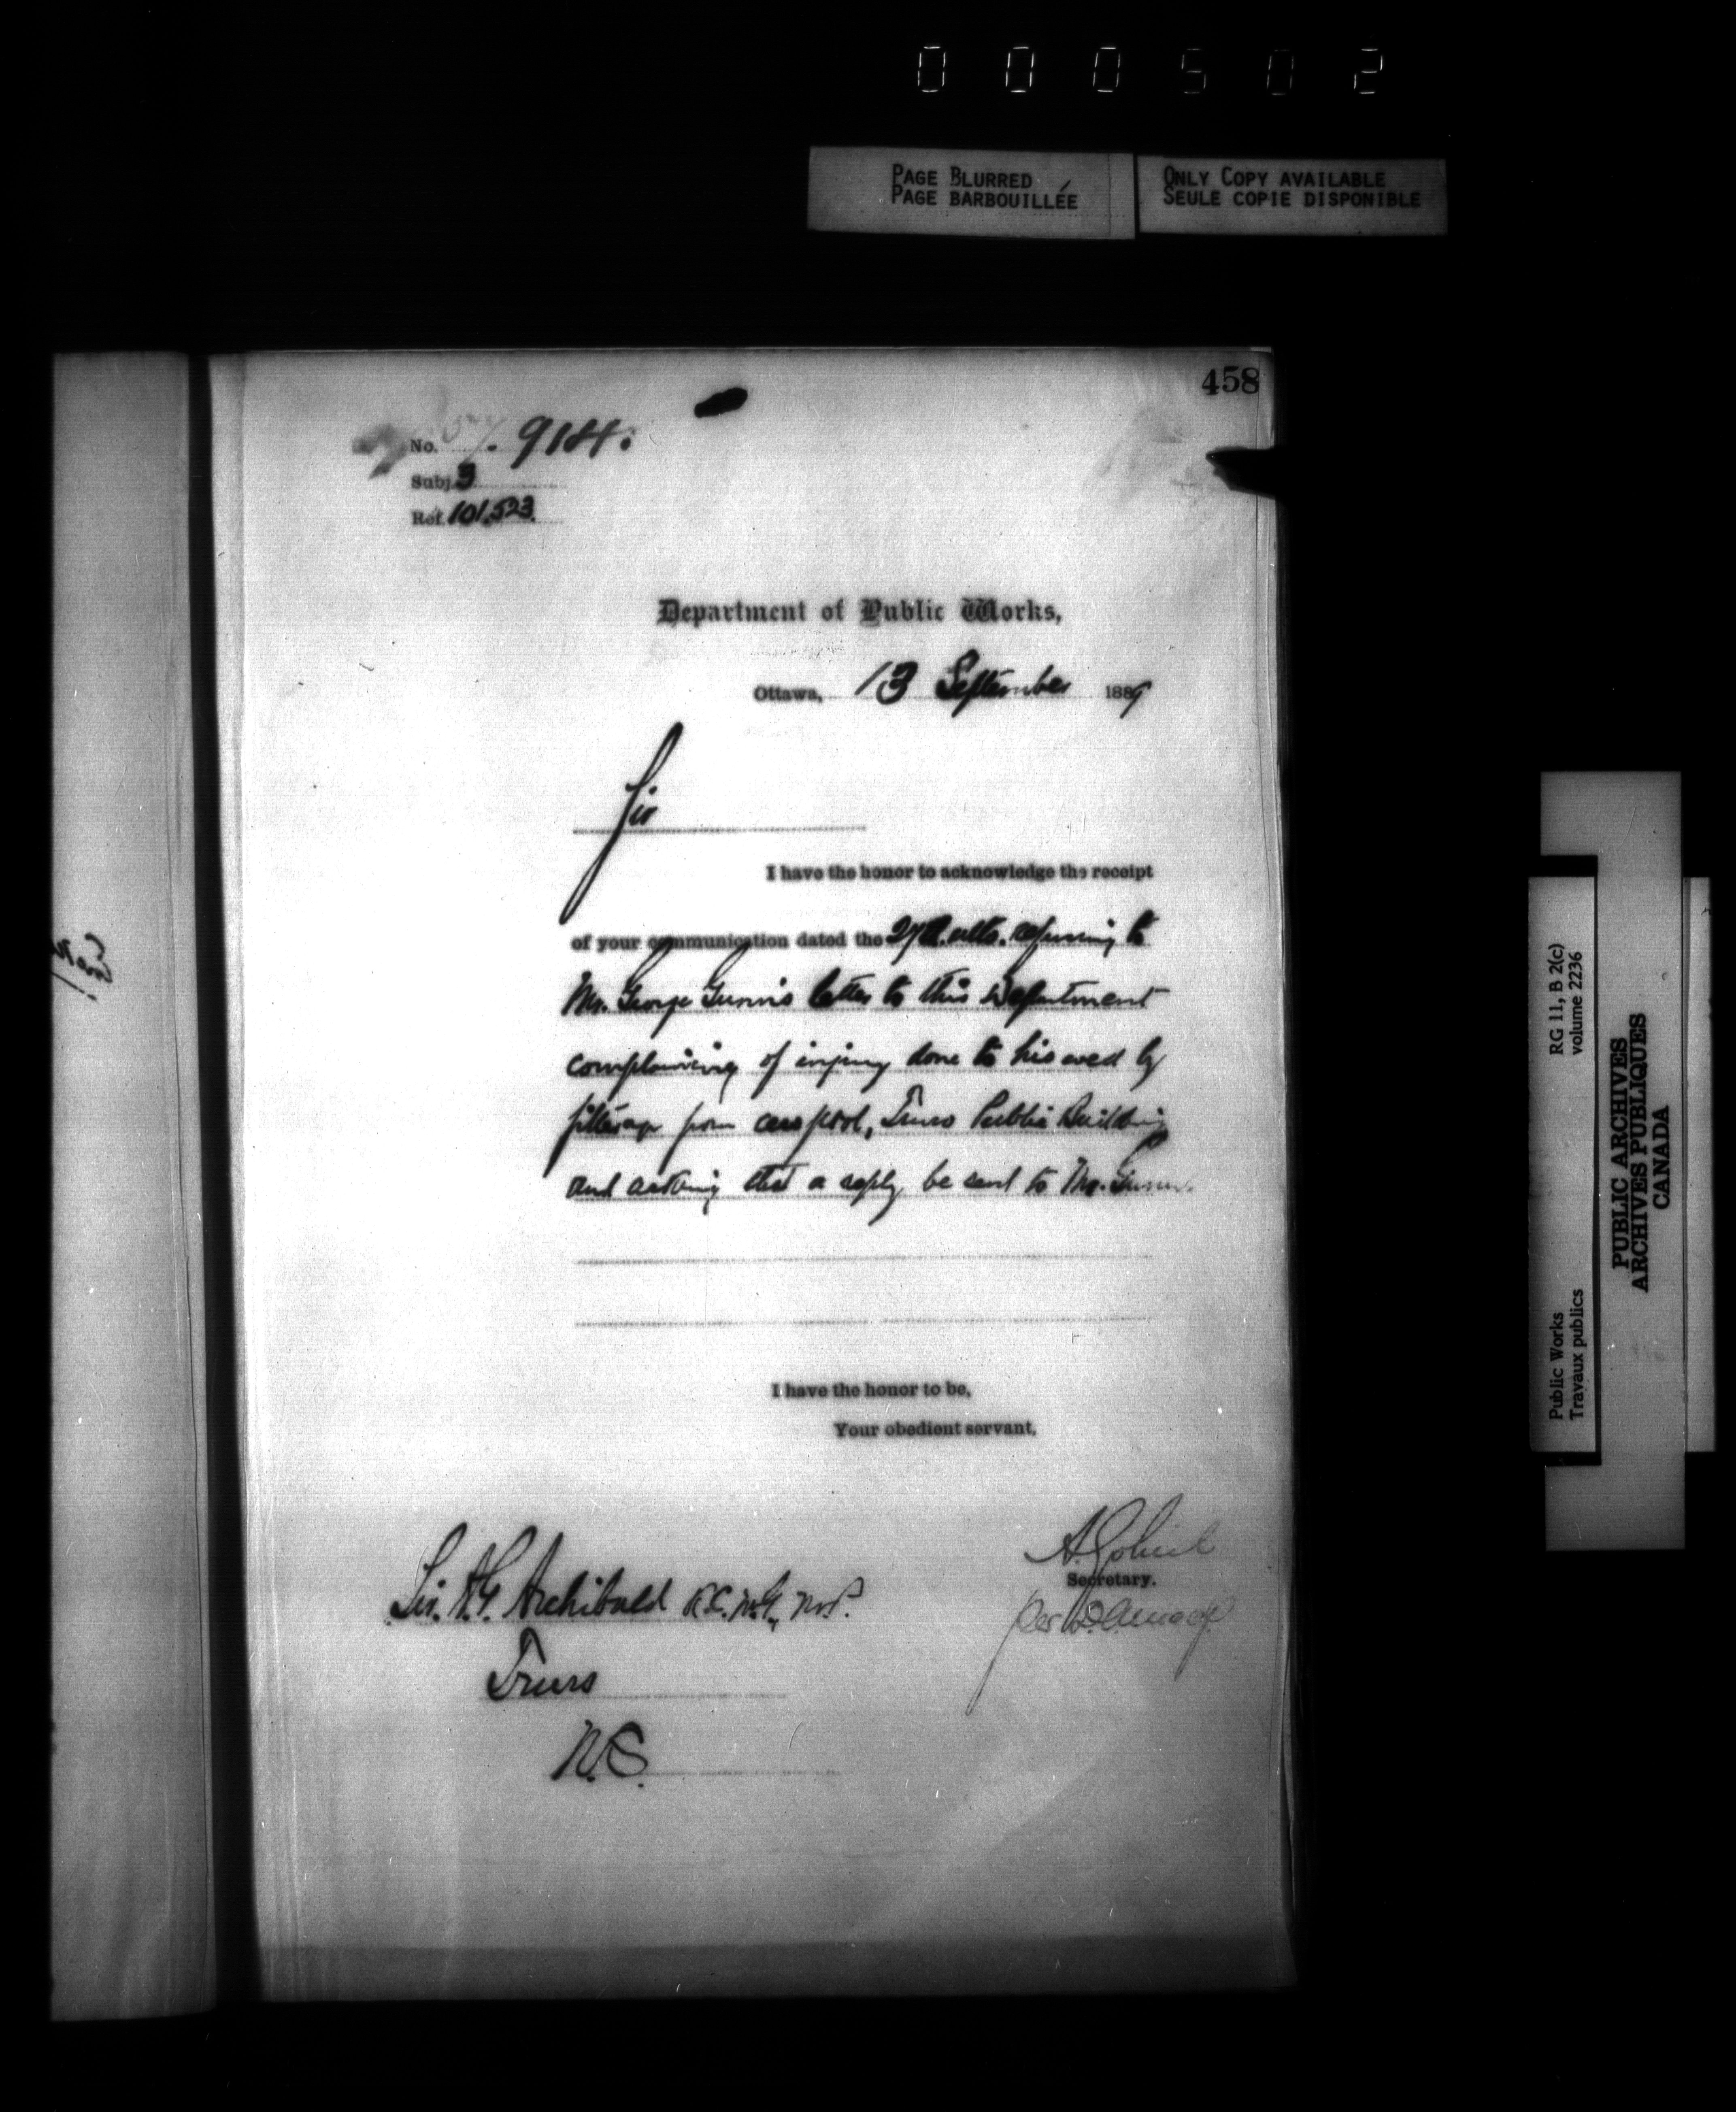 0 0 0 5 0 2
PAGE BLURRED
PAGE BARBOUILLÉE
ONLY COPY AVAILABLE
SEULE COPIE DISPONIBLE
458
No. 9184.
Subj. 3
Ref. 101,523.
Department of Public Works,
Ottawa, 13 September 1889
Sir
I have the honor to acknowledge the receipt
of your communication dated the 27th ulto. referring to
Mr. George Gunn's letter to this Department
complaining of injury done to his well by
filterage from cesspool, Truro Public Building
and asking that a reply be sent to Mr. Gunn.
I have the honor to be,
Your obedient servant,
A. Gobeil
Secretary.
per
Sir. A.G. Archibald K.C.M.G., M.P.
Truro
N.S.
Public Works
Travaux publics
RG 11, B 2(c)
volume 2236
PUBLIC ARCHIVES
ARCHIVES PUBLIQUES
CANADA